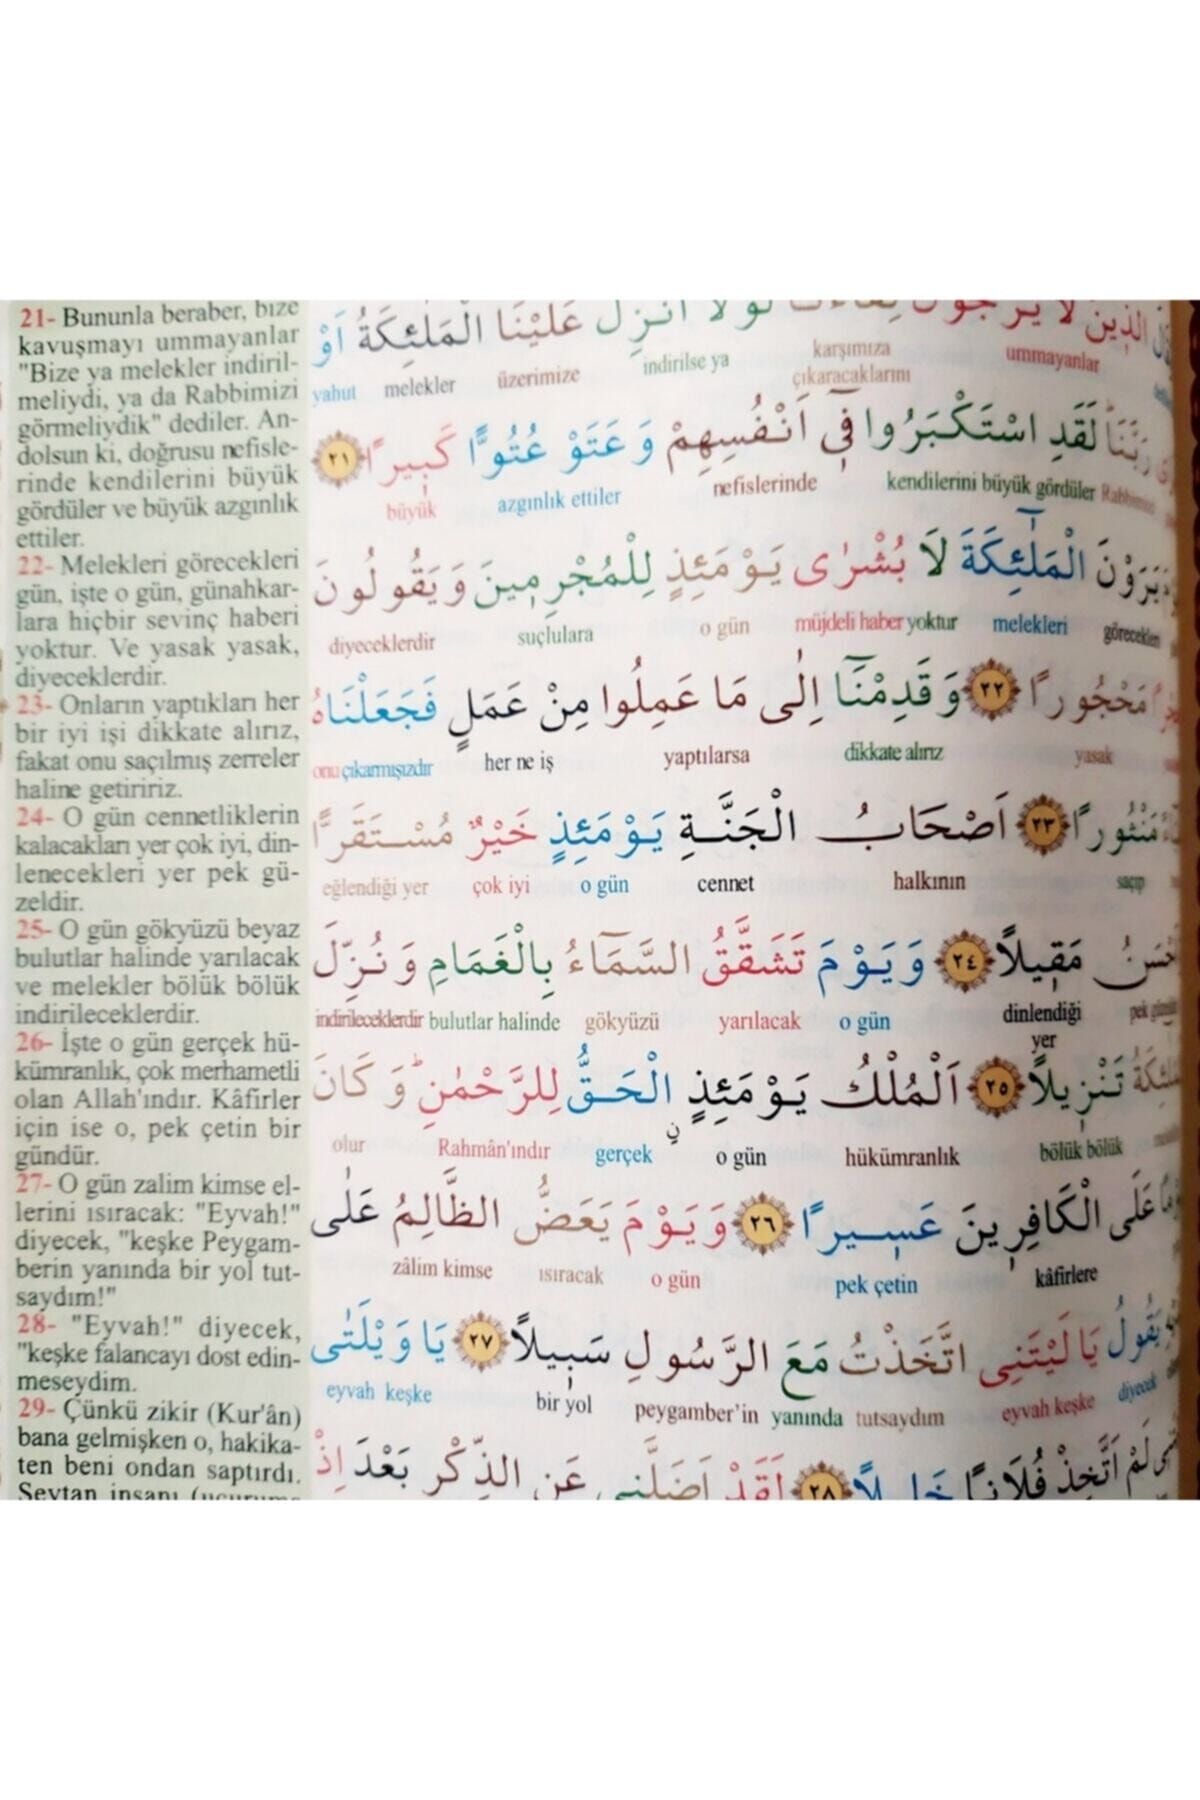 21- Bununla beraber, bize
kavuşmayı ummayanlar
"Bize ya melekler indiril-
meliydi, ya da Rabbimizi
görmeliydik" dediler. An-
dolsun ki, doğrusu nefisle-
rinde kendilerini büyük
gördüler ve büyük azgınlık
ettiler.
22- Melekleri görecekleri
gün, işte o gün, günahkar-
lara hiçbir sevinç haberi
yoktur. Ve yasak yasak,
diyeceklerdir.
23- Onların yaptıkları her
bir iyi işi dikkate alırız,
fakat onu saçılmış zerreler
haline getiririz.
24- O gün cennetliklerin
kalacakları yer çok iyi, din-
lenecekleri yer pek gü-
zeldir.
25- O gün gökyüzü beyaz
bulutlar halinde yarılacak
ve melekler bölük bölük
indirileceklerdir.
26- İşte o gün gerçek hü-
kümranlık, çok merhametli
olan Allah'ındır. Kâfirler
için ise o, pek çetin bir
gündür.
27- O gün zalim kimse el-
lerini ısıracak: "Eyvah!"
diyecek, "keşke Peygam-
berin yanında bir yol tut-
saydım!"
28- "Eyvah!" diyecek,
"keşke falancayı dost edin-
meseydim.
29- Çünkü zikir (Kur'ân)
bana gelmişken o, hakika-
ten beni ondan saptırdı.
Şeytan insanı
الَّذِينَ لَا يَرْجُونَ لِقَاءَنَا لَوْلَا اُنْزِلَ عَلَيْنَا الْمَلٰئِكَةُ اَوْ
ummayanlar karşımıza indirilse ya üzerimize melekler yahut
çıkaracaklarını
رَبَّنَا لَقَدِ اسْتَكْبَرُوا فِٓى اَنْفُسِهِمْ وَعَتَوْ عُتُوًّا كَبِيرًا ٢١
Rabbimizi kendilerini büyük gördüler nefislerinde azgınlık ettiler büyük
يَرَوْنَ الْمَلٰٓئِكَةَ لَا بُشْرٰى يَوْمَئِذٍ لِلْمُجْرِمِينَ وَيَقُولُونَ
görecekleri melekleri müjdeli haber yoktur o gün suçlulara diyeceklerdir
مَحْجُورًا ٢٢ وَقَدِمْنَٓا اِلٰى مَا عَمِلُوا مِنْ عَمَلٍ فَجَعَلْنَاهُ
yasak dikkate alırız yaptılarsa her ne iş onu çıkarmışızdır
مَنْثُورًا ٢٣ اَصْحَابُ الْجَنَّةِ يَوْمَئِذٍ خَيْرٌ مُسْتَقَرًّا
saçıp halkının cennet o gün çok iyi eğlendiği yer
مَقِيلًا ٢٤ وَيَوْمَ تَشَقَّقُ السَّمَٓاءُ بِالْغَمَامِ وَنُزِّلَ
dinlendiği o gün yarılacak gökyüzü bulutlar halinde indirileceklerdir
yer
تَنْزِيلًا ٢٥ اَلْمُلْكُ يَوْمَئِذٍ الْحَقُّ لِلرَّحْمٰنِ وَكَانَ
bölük bölük hükümranlık o gün gerçek Rahmân'ındır olur
عَلَى الْكَافِرِينَ عَسِيرًا ٢٦ وَيَوْمَ يَعَضُّ الظَّالِمُ عَلٰى
kâfirlere pek çetin o gün ısıracak zâlim kimse
يَقُولُ يَا لَيْتَنِى اتَّخَذْتُ مَعَ الرَّسُولِ سَبِيلًا ٢٧ يَا وَيْلَتٰى
diyecek eyvah keşke tutsaydım yanında peygamber'in bir yol eyvah keşke
لَمْ اَتَّخِذْ فُلَانًا خَلِيلًا ٢٨ لَقَدْ اَضَلَّنِى عَنِ الذِّكْرِ بَعْدَ اِذْ